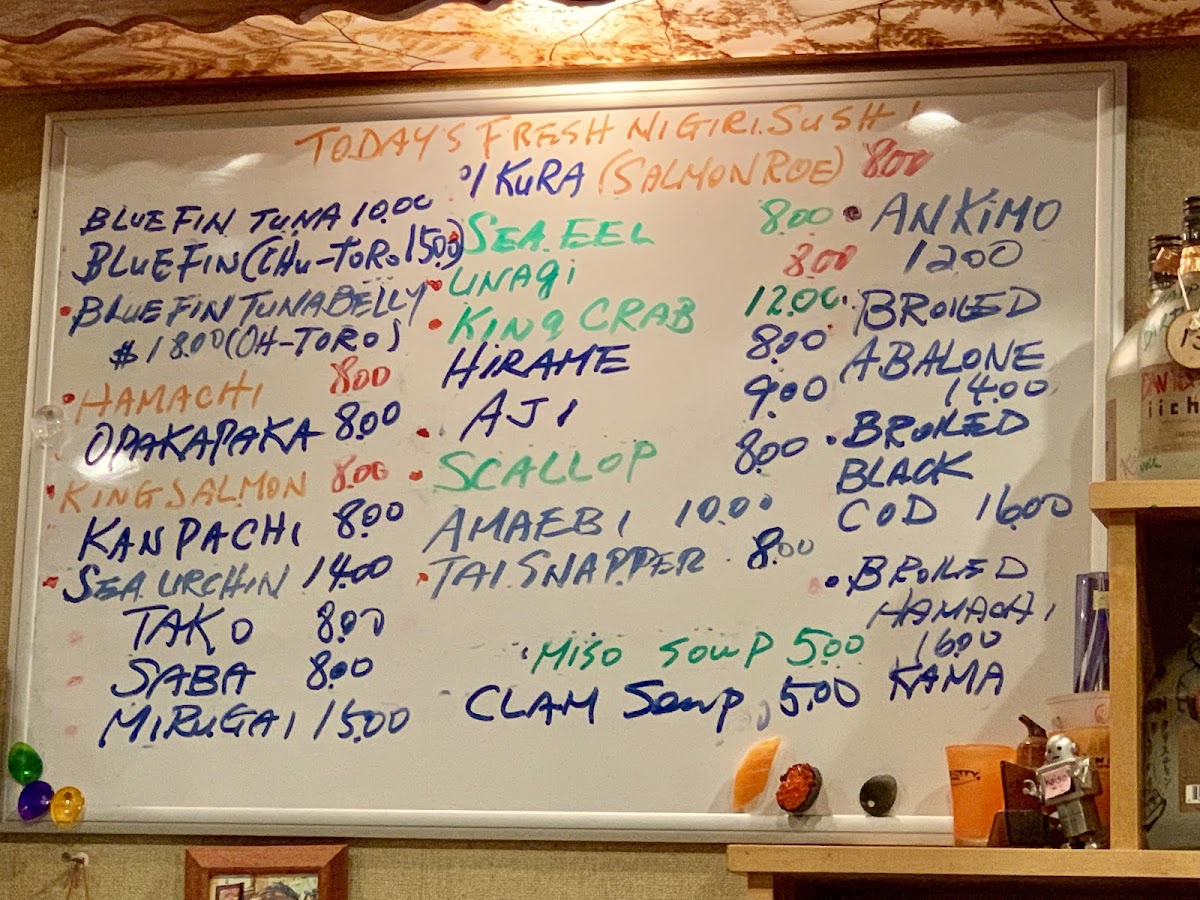 TODAY'S FRESH NIGIRI SUSHI
IKURA (SALMON ROE) 8.00
BLUE FIN TUNA 10.00
BLUE FIN (CHU-TORO 15.00)
BLUE FIN TUNA BELLY
$18.00 (OH-TORO)
HAMACHI 8.00
OPAKAPAKA 8.00
KING SALMON 8.00
KANPACHI 8.00
SEA URCHIN 14.00
TAKO 8.00
SABA 8.00
MIRUGAI 15.00
SEA EEL 8.00
UNAGI 8.00
KING CRAB 12.00
HIRAME 8.00
AJI 9.00
SCALLOP 8.00
AMAEBI 10.00
TAI SNAPPER 8.00
MISO SOUP 5.00
CLAM Soup 5.00
ANKIMO
12.00
BROILED
ABALONE
14.00
BROILED
BLACK
COD 16.00
BROILED
HAMACHI
16.00
KAMA
iich